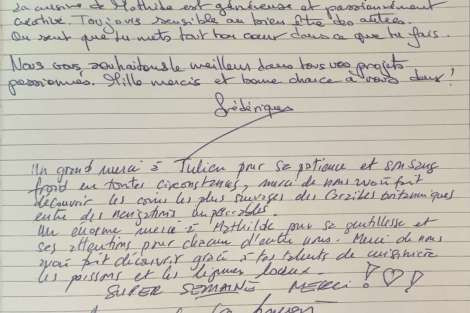 La cuisine de Mathilde est généreuse et passionnément
créative. Toujours sensible au bien être des autres.
On sent que tu mets tout ton cœur dans ce que tu fais.
Nous vous souhaitons le meilleur dans tous vos projets
passionnés. Mille mercis et bonne chance à vous deux !
Frédérique
Un grand merci à Julien pour sa patience et son sang
froid en toutes circonstances, merci de nous avoir fait
découvrir les coins les plus sauvages des Caraïbes britanniques
entre des navigations impeccables.
Un énorme merci à Mathilde pour sa gentillesse et
ses attentions pour chacun d'entre nous. Merci de nous
avoir fait découvrir grâce à tes talents de cuisinière
les poissons et les légumes locaux.
SUPER SEMAINE MERCI !